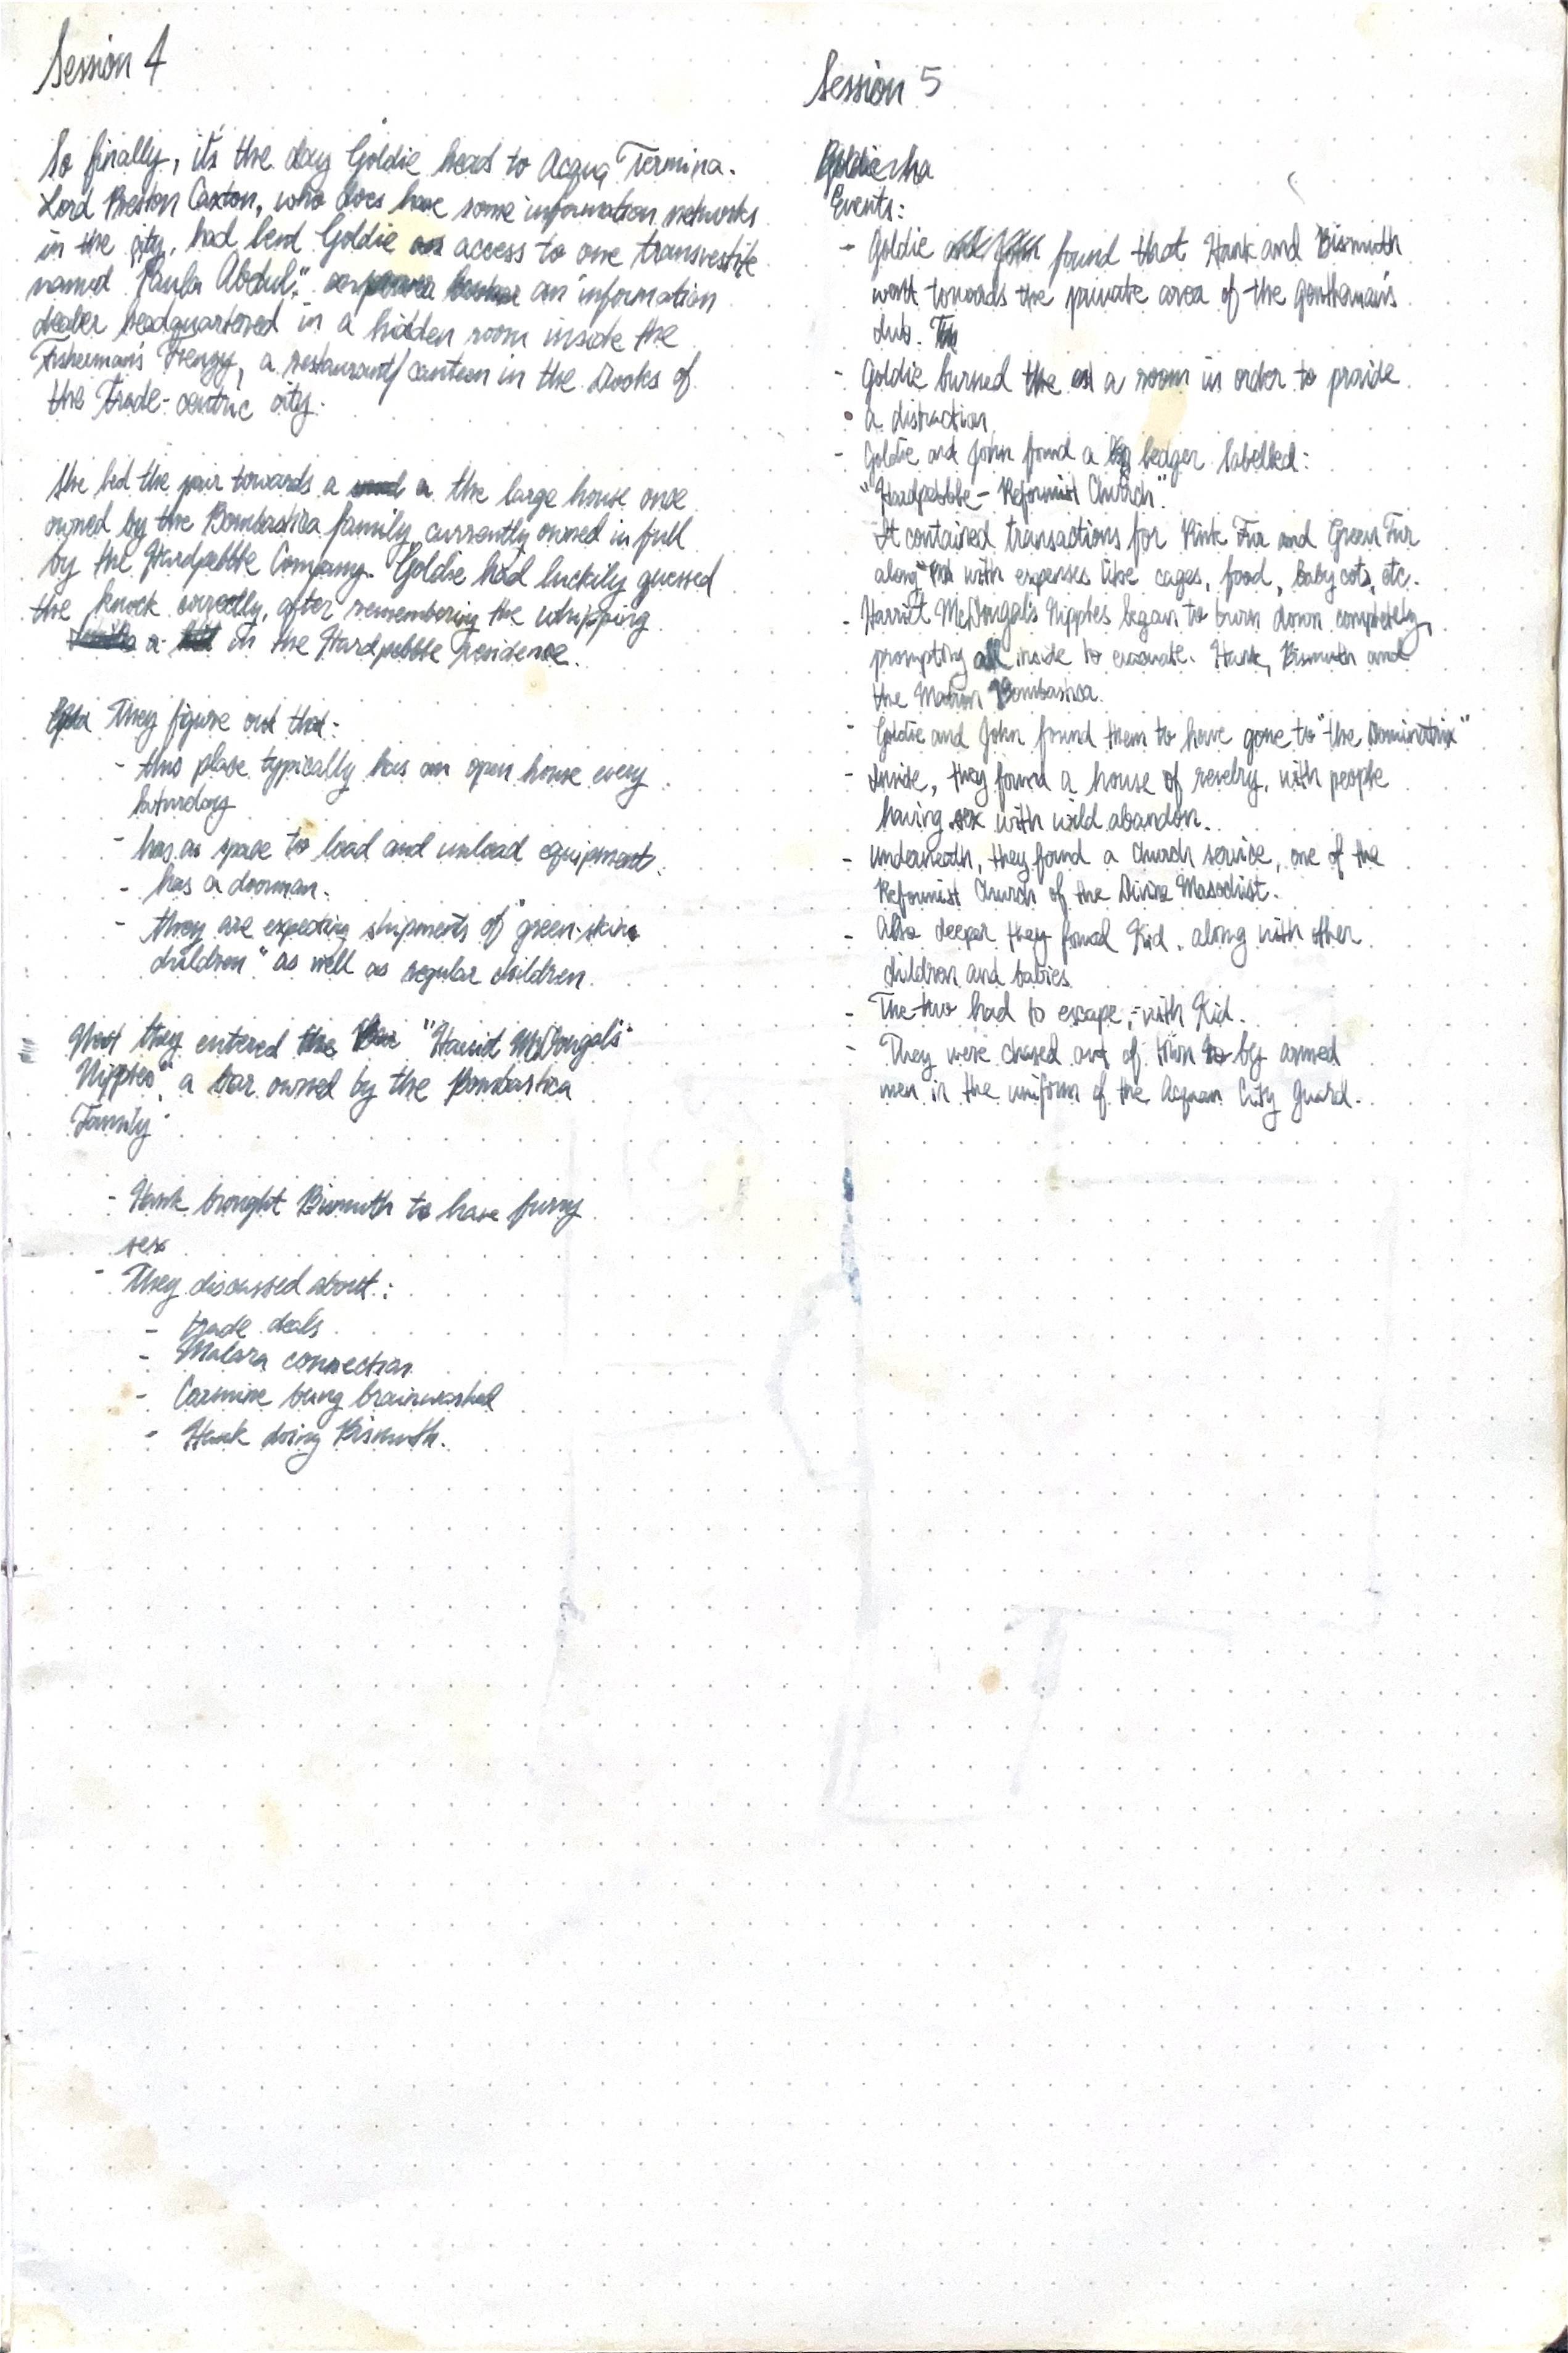 Session 4
So finally, it's the day Goldie head to Acqua Termina.
Lord Preston Caxton, who does have some information networks
in the city, had lend Goldie access to one transvestite
named "Paula Abdul," an information
dealer headquartered in a hidden room inside the
Fisherman's Frenzy, a restaurant/canteen in the Docks of
the Trade-centric city.
She led the pair towards a the large house once
owned by the Bombastica family, currently owned in full
by the Hardpebble Company. Goldie had luckily guessed
the knock correctly, after remembering the whipping
in the Hardpebble residence.
They figure out that:
- this place typically has an open house every
Saturday
- has a space to load and unload equipment.
- has a doorman.
- they are expecting shipments of "green-skin
children" as well as regular children.
Next they entered the "Harriet McDongal's
Nipples", a bar owned by the Bombastica
Family.
- Hank brought Bismuth to have furry
sex
- They discussed about:
- trade deals
- Malara connection
- Carmine being brainwashed
- Hank doing Bismuth.
Session 5
Events:
- Goldie found that Hank and Bismuth
went towards the private area of the gentleman's
club.
- Goldie burned the a room in order to provide
a distraction
- Goldie and John found a ledger labelled:
"Hardpebble - Reformist Church".
It contained transactions for Pink Fur and Green Fur
along with expenses like cages, food, baby cots, etc.
- Harriet McDongal's Nipples began to burn down completely,
prompting all inside to evacuate. Hank, Bismuth and
the Matron Bombastica.
- Goldie and John found them to have gone to "the Dominatrix"
- Inside, they found a house of revelry, with people
having sex with wild abandon.
- Underneath, they found a Church service, one of the
Reformist Church of the Divine Masochist.
- Also deeper they found Kid, along with other
children and babies
- The two had to escape, with Kid.
- They were chased out of town by armed
men in the uniform of the Acquan City Guard.